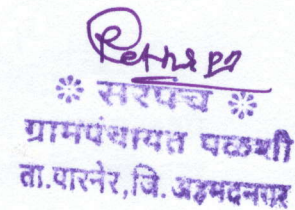 ❊ सरपंच ❊
ग्रामपंचायत पळशी
ता.पारनेर,जि. अहमदनगर